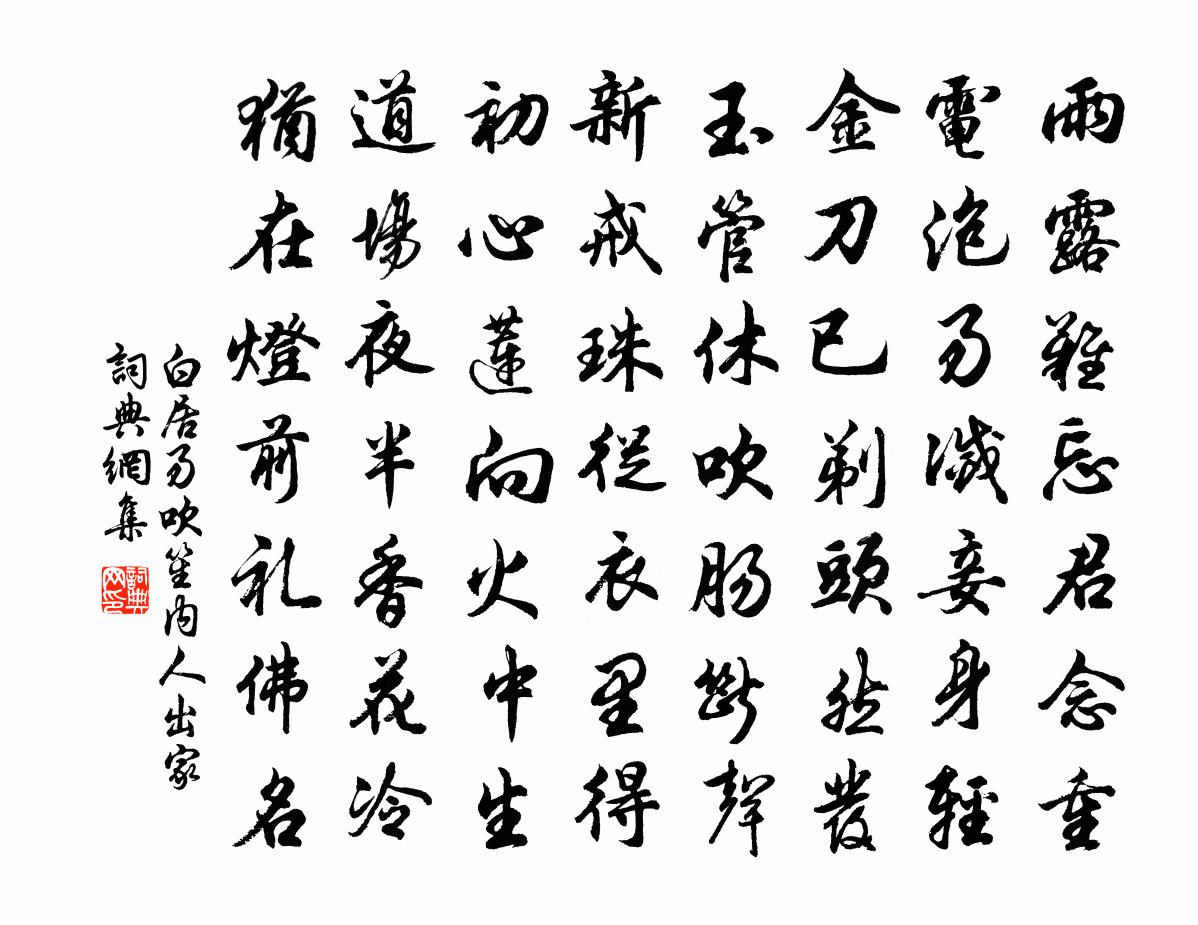 雨露難忘君念重
電泡易滅妾身輕
金刀已剃頭然發
玉管休吹腸斷聲
新戒珠從衣里得
初心蓮向火中生
道場夜半香花冷
猶在燈前礼佛名
白居易吹笙內人出家
詞典網集
詞典
网印